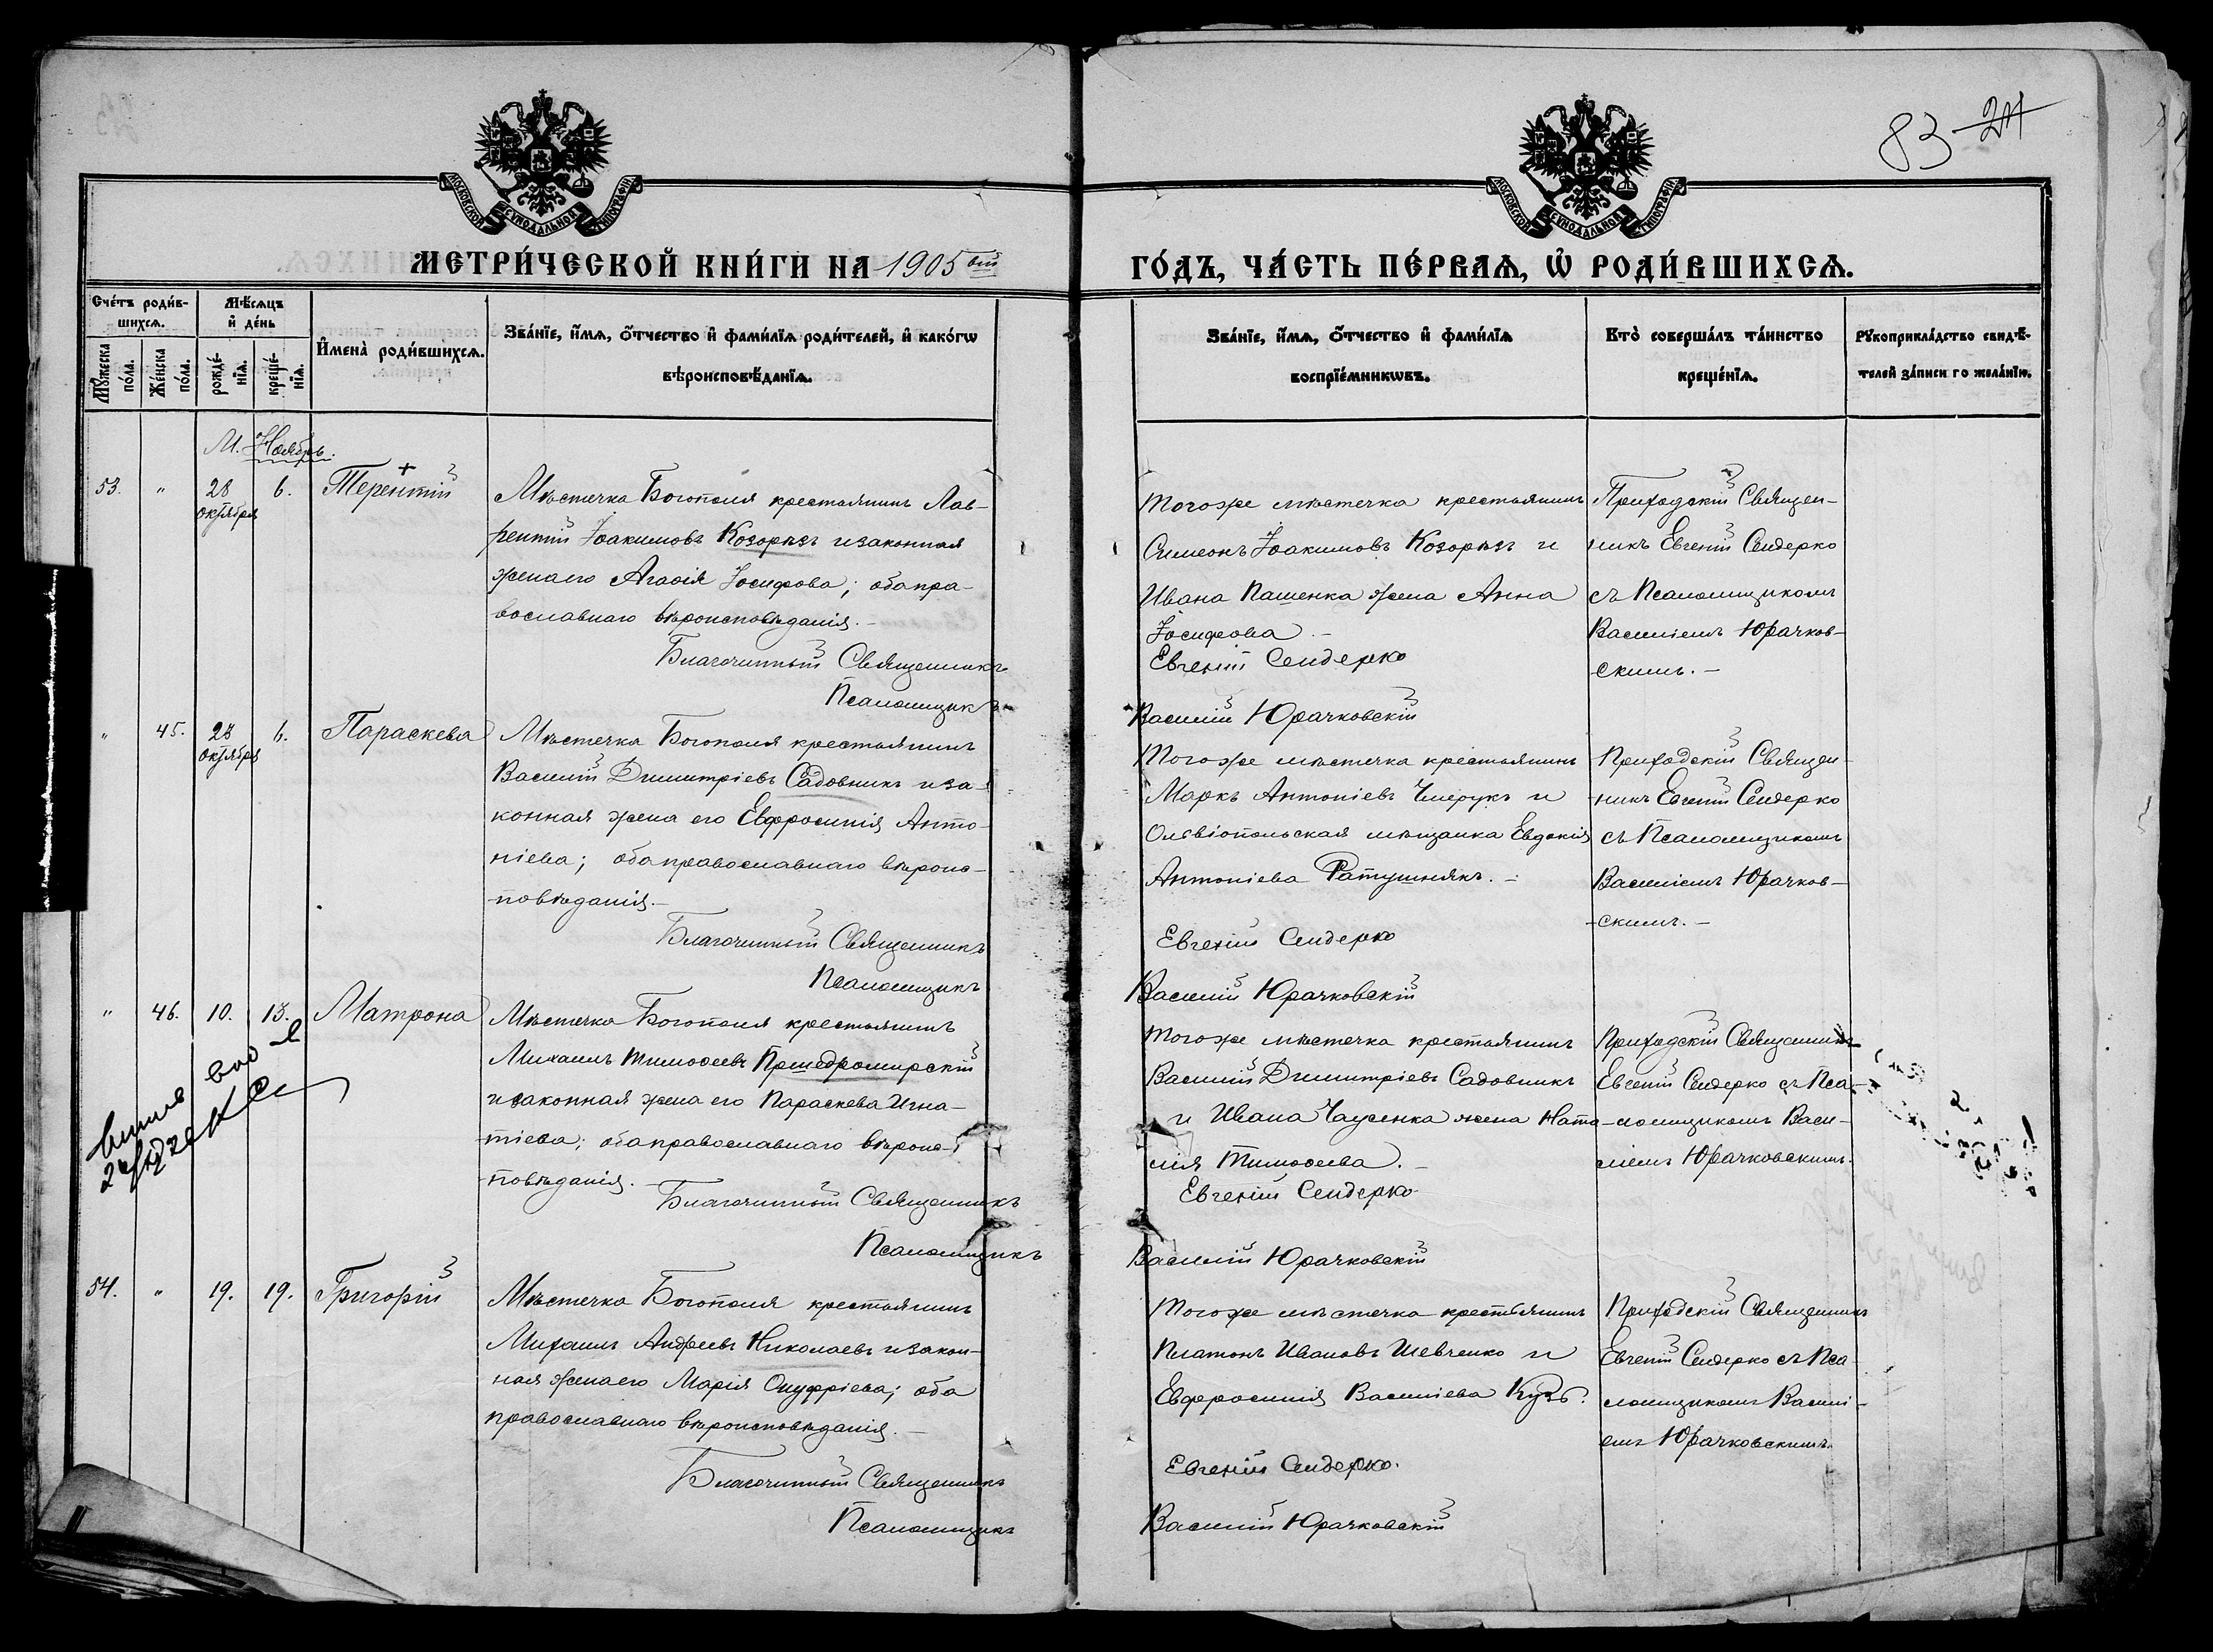 83 24
МОСКОВСКОЙ СѴНОДАЛЬНОЙ ТИПОГРАФІИ
МОСКОВСКОЙ СѴНОДАЛЬНОЙ ТИПОГРАФІИ
МЕТРИ́ЧЕСКОЙ КНИ́ГИ НА 1905 ый
ГО́ДЪ, ЧА́СТЬ ПЕ́РВАѦ, Ѡ҆ РОДИ́ВШИХСѦ.
Сче́тъ роди́в-
шихсѧ.
Мꙋ́жеска по́ла.
Же́нска по́ла.
Мѣ́сѧцъ
и҆ де́нь
рожде́-
нїѧ.
креще́-
нїѧ.
И҆мена̀ роди́вшихсѧ.
Зва́нїе, и҆́мѧ, ѻ҆́тчество и҆ фами́лїѧ роди́телей, и҆ како́гѡ
вѣроисповѣ́данїѧ.
Зва́нїе, и҆́мѧ, ѻ҆́тчество и҆ фами́лїѧ
воспрїе́мникѡвъ.
Кто̀ соверша́лъ та́инство
креще́нїѧ.
Рꙋкоприкла́дство свидѣ́-
телей за́писи по жела́нїю.
М. Ноябрь.
53. " 28 октября 6. Терентій
Мѣстечка Богополя крестьянинъ Лав-
рентій Іоакимовъ Козоръзъ и законная
жена его Агаѳія Іосифова; оба пра-
вославнаго вѣроисповѣданія.-
Благочинный Священникъ
Псаломщикъ
Тогоже мѣстечка крестьянинъ
Симеонъ Іоакимовъ Козорѣзъ и
Ивана Пашенка жена Анна
Іосифова.-
Евгеній Сендерко
Василій Юрачковскій
Приходскій Священ-
никъ Евгеній Сендерко
съ Псаломщикомъ
Василіемъ Юрачков-
скимъ.-
" 45. 28 октября 6. Параскева
Мѣстечка Богополя крестьянинъ
Василій Димитріевъ Садовникъ и за-
конная жена его Евфросинія Анто-
ніева; оба православнаго вѣроис-
повѣданія.-
Благочинный Священникъ
Псаломщикъ
Тогоже мѣстечка крестьянинъ
Маркъ Антоніевъ Чмерукъ и
Ольвіопольская мѣщанка Евдокія
Антоніева Ратушнякъ.-
Евгеній Сендерко
Василій Юрачковскій
Приходскій Священ-
никъ Евгеній Сендерко
съ Псаломщикомъ
Василіемъ Юрачков-
скимъ.-
" 46. 10. 13. Матрона
Мѣстечка Богополя крестьянинъ
Михаилъ Тимоѳеевъ Пршедромирскій
и законная жена его Параскева Игна-
тіева; оба православнаго вѣроис-
повѣданія.-
Благочинный Священникъ
Псаломщикъ
Тогоже мѣстечка крестьянинъ
Василій Димитріевъ Садовникъ
и Ивана Чаусенка жена Ната-
лія Тимоѳеева.-
Евгеній Сендерко
Василій Юрачковскій
Приходскій Священникъ
Евгеній Сендерко съ Пса-
ломщикомъ Васи-
ліемъ Юрачковскимъ.
54. " 19. 19. Григорій
Мѣстечка Богополя крестьянинъ
Михаилъ Андреевъ Николаевъ и закон-
ная жена его Марія Онуфріева; оба
православнаго вѣроисповѣданія.-
Благочинный Священникъ
Псаломщикъ
Тогоже мѣстечка крестьянинъ
Платонъ Ивановъ Шевченко и
Евфросинія Василіева Кузь.
Евгеній Сендерко.
Василій Юрачковскій
Приходскій Священникъ
Евгеній Сендерко съ Пса-
ломщикомъ Васалі-
емъ Юрачковскимъ.